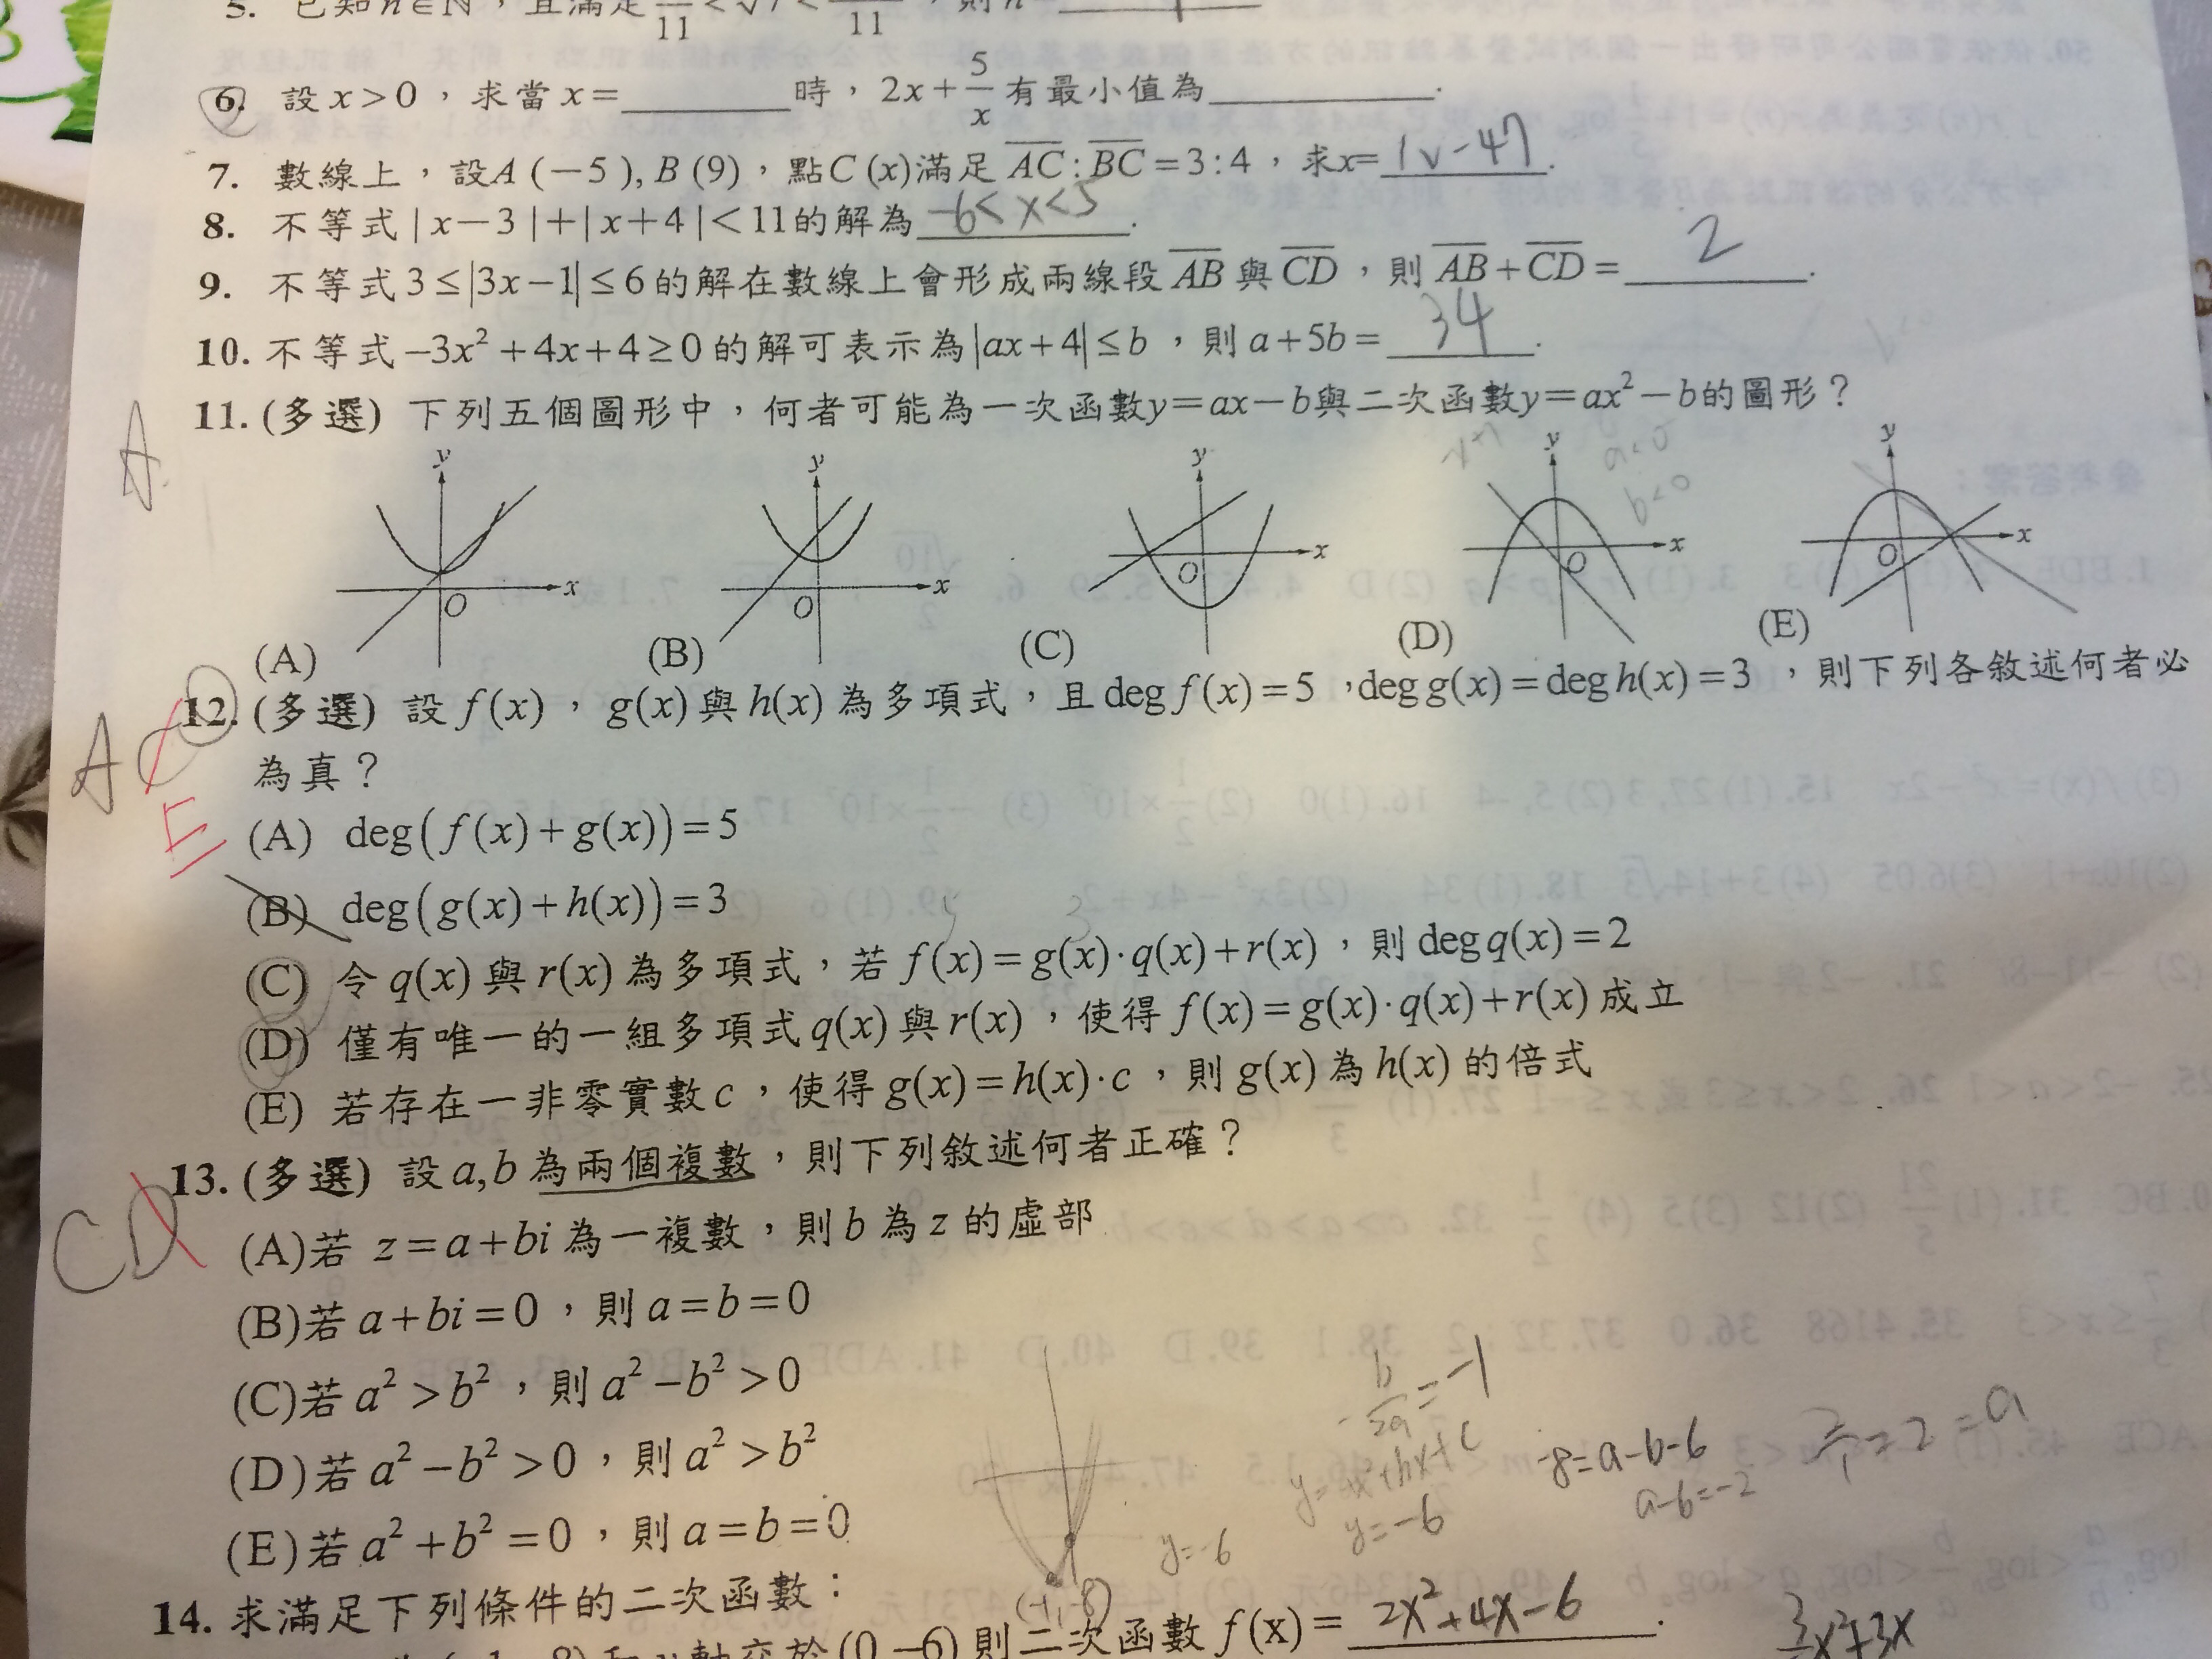 5. 已知n∈N，且滿足 /11<√7< /11，則n=
6. 設x>0，求當x=______時，2x+5/x有最小值為______.
7. 數線上，設A(−5),B(9)，點C(x)滿足 AC:BC=3:4，求x=1∨-47.
8. 不等式|x−3|+|x+4|<11的解為-6<x<5.
9. 不等式3≤|3x−1|≤6的解在數線上會形成兩線段AB與CD，則AB+CD=2.
10. 不等式−3x²+4x+4≥0的解可表示為|ax+4|≤b，則a+5b=34.
A. 11. (多選) 下列五個圖形中，何者可能為一次函數y=ax−b與二次函數y=ax²−b的圖形？
a<0
b<0
y y y y y
x x x x x
O O O O O
(A) (B) (C) (D) (E)
AC 12. (多選) 設f(x)，g(x)與h(x)為多項式，且deg f(x)=5，deg g(x)=deg h(x)=3，則下列各敘述何者必
為真？
E (A) deg(f(x)+g(x))=5
(B) deg(g(x)+h(x))=3
(C) 令q(x)與r(x)為多項式，若f(x)=g(x)·q(x)+r(x)，則deg q(x)=2
(D) 僅有唯一的一組多項式q(x)與r(x)，使得f(x)=g(x)·q(x)+r(x)成立
(E) 若存在一非零實數c，使得g(x)=h(x)·c，則g(x)為h(x)的倍式
CD 13. (多選) 設a,b為兩個複數，則下列敘述何者正確？
(A)若 z=a+bi為一複數，則b為z的虛部
(B)若a+bi=0，則a=b=0
(C)若a²>b²，則a²−b²>0
(D)若a²−b²>0，則a²>b²
(E)若a²+b²=0，則a=b=0
-b/2a=-1
-8=a-b-6
a-b=-2
2/1=2=a
y=-6
y=-6
(-1,-8)
14. 求滿足下列條件的二次函數：
(0,−6)則二次函數f(x)=2x²+4x-6.